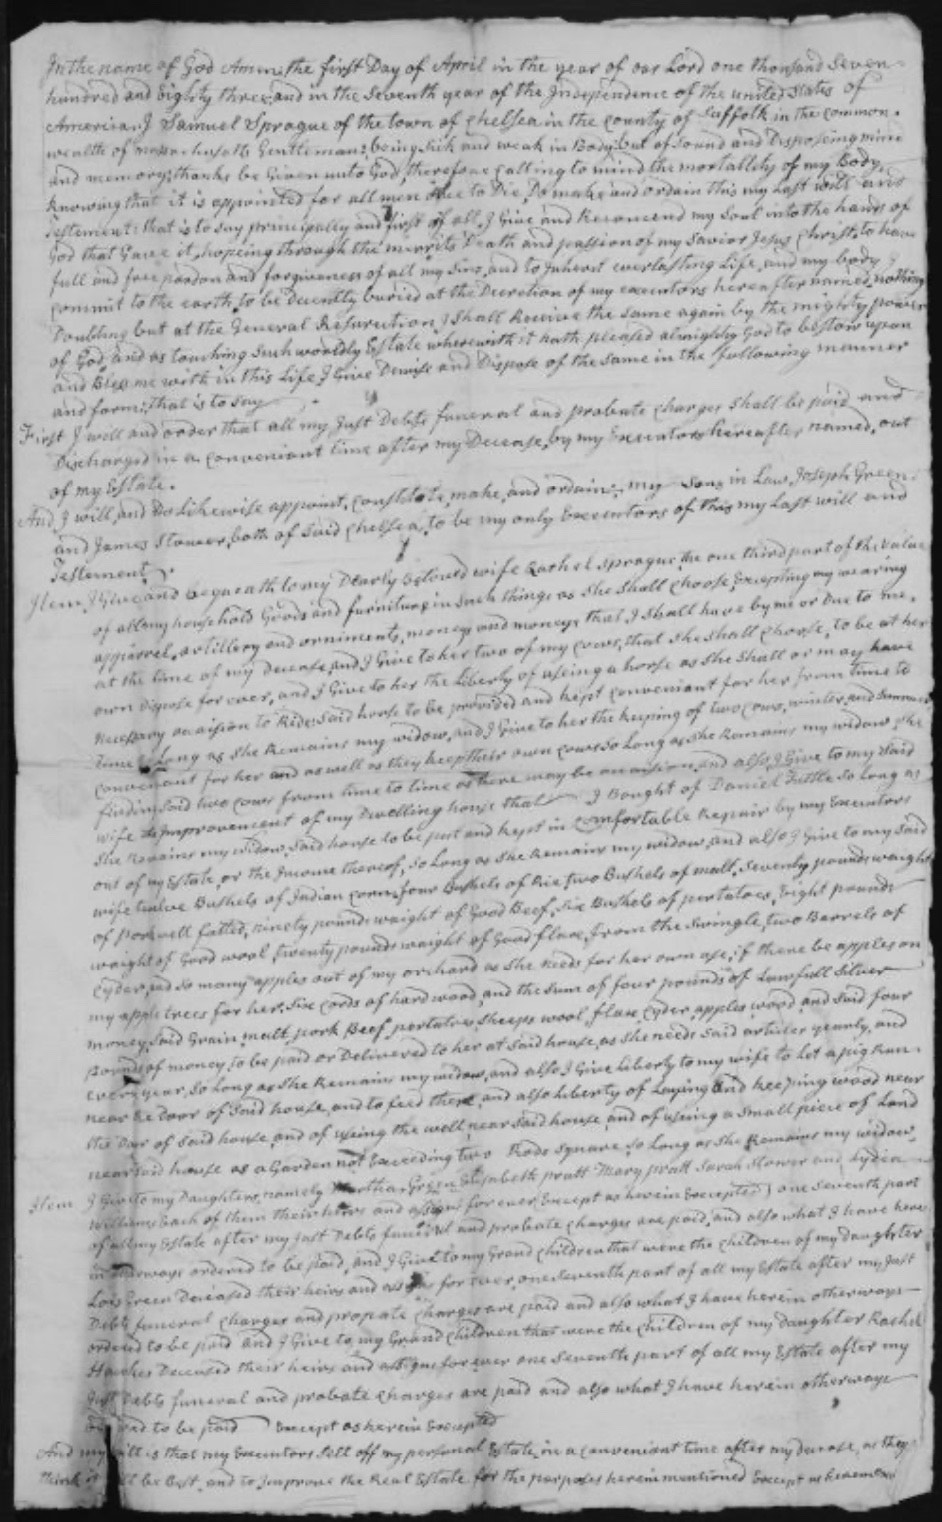 In the name of God Amen, the first Day of April in the year of our Lord one thousand Seven
hundred and Eighty three, and in the Seventh year of the Independence of the united States of
American, I Samuel Sprague of the town of Chelsea in the County of Suffolk in the common=
wealth of massachusetts Gentleman, being Sick and weak in Body, but of Sound and Disposing mind
and memory, thanks be Given unto God, therefore calling to mind the mortallety of my Body,
knowing that it is appointed for all men once to Die, Do make and ordain this my Last will and
Testement: that is to say principally and first of all, I Give and Recomend my Soul into the hands of
God that Gave it, hopeing through the merrits Death and passion of my Savior Jesus Christ, to have
full and free pardon and forgiveness of all my Sins, and to Inherit everlasting Life, and my body I
commit to the earth, to be Decently buried at the Descretion of my executors hereafter named, nothing
Doubting but at the General Resurection I Shall Receive the Same again by the mighty power
of God, and as touching Such worldly Estate wherewith it hath pleased almighty God to bestow upon
and Bless me with in this Life, I Give Demise and Dispose of the Same in the following manner
and form; that is to say
First I will and order that all my Just Debts funeral and probate Charges Shall be paid and
Discharged in a conveniant time after my Decease, by my Executors hereafter named, out
of my Estate.
And I will and Do Likewise appoint, constitute, make, and ordain, my Sons in Law, Joseph Green
and James Stower, both of Said Chelsea, to be my only Executors of this my Last will and
Testement.
Item, I Give and bequeath to my Dearly beloved wife Rachel Sprague, the one third part of the value
of all my household Goods and furniture in Such things as She Shall Choose, Excepting my wearing
apparrel, artillery and orniments, moneys and moneys that I Shall have by me or Due to me,
at the time of my Decease, and I Give to her two of my cows, that She Shall Choose, to be at her
own Dispose for ever, and I Give to her the Liberty of useing a horse as She Shall or may have
necessary occasion to Ride, Said horse to be provided and kept conveniant for her from time to
time So Long as She Remains my widow, and I Give to her the keeping of two cows, winter and Summer
conveniant for her and as well as they keep their own cows So Long as She Remains my widow, She
finding Said two cows from time to time as there may be occasion, and also I Give to my Said
wife the Improvement of my Dwelling house that I Bought of Daniel Tuttle So Long as
She Remains my widow, Said house to be put and kept in comfortable Repair by my Executors
out of my Estate, or the Income thereof, So Long as She Remains my widow, and also I Give to my Said
wife twelve Bushels of Indian corn, four Bushels of Rie, two Bushels of malt, Seventy pounds waight
of pork well fatted, ninety pounds waight of Good Beef, Six Bushels of pertatoes, Eight pounds
waight of Good wool, twenty pounds waight of Good flax, from the Swingle, two Barrels of
Cyder, and So many apples out of my orchard as She needs for her own use, if there be apples on
my apple trees for her, Six cords of hard wood, and the Sum of four pounds of Lawfull Silver
money, Said Grain, malt, pork Beef, pertatoes Sheeps wool, flax, Cyder, apples, wood, and Said four
pounds of money, to be paid or Delivered to her at Said house, as She needs Said articles yearly, and
every year, So long as She Remains my widow, and also I Give Liberty to my wife to Let a pig Run
near the Door of Said house, and to feed there, and also Liberty of Laying and keeping wood near
the Door of Said house, and of useing the well near Said house and of useing a Small piece of Land
near Said house as a Garden not Exceeding two Rods Square, So Long as She Remains my widow.
Item I Give to my Daughters, namely Martha Green, Elisabeth pratt Mary pratt Sarah Stower and Lydia
Williams Each of them their heirs and assigns for ever, Except as herein Excepted, one Seventh part
of all my Estate after my Just Debts funeral and probate charges are paid, and also what I have here
in otherways ordered to be paid, and I Give to my Grand Children that were the Children of my Daughter
Lois Green Deceased their heirs and assigns for ever, one Seventh part of all my Estate after my Just
Debts funeral Charges and propate Charges are paid and also what I have herein otherways
ordered to be paid and I Give to my Grand Children that were the Children of my Daughter Rachel
Hawkes Deceased their heirs and assigns for ever one Seventh part of all my Estate after my
Just Debts funeral and probate Charges are paid and also what I have herein otherways
ordered to be paid Except as herein Excepted
And my will is that my Executors Sell off my personal Estate, in a conveniant time after my decease, as they
think it will be Best, and to Improve the Real Estate for the purposes herein mentioned Except as